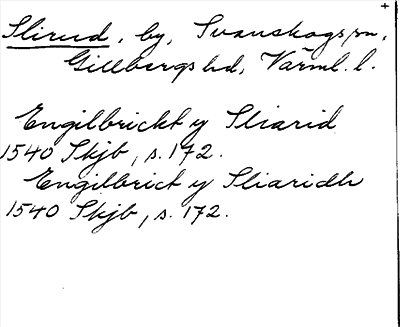 Slirud, by, Svanskogs sn,
Gillbergs hd, Värml. l.
Engilbrickt y Sliarid
1540 Skjb, s. 172.
Engilbrict y Sliaridh
1540 Skjb, s. 172.